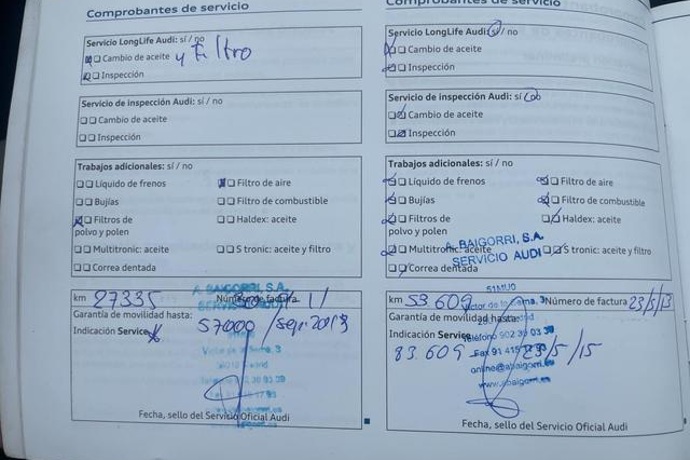 Comprobantes de servicio
Servicio LongLife Audi: sí / no
Cambio de aceite y Filtro
Inspección
Servicio de inspección Audi: sí / no
Cambio de aceite
Inspección
Trabajos adicionales: sí / no
Líquido de frenos
Filtro de aire
Bujías
Filtro de combustible
Filtros de polvo y polen
Haldex: aceite
Multitronic: aceite
S tronic: aceite y filtro
Correa dentada
A. BAIGORRI, S.A.
km 27335
Número de factura
Garantía de movilidad hasta:
Indicación Service
57000 / sep. 2013
Fecha, sello del Servicio Oficial Audi
Comprobantes de servicio
Servicio LongLife Audi: sí / no
Cambio de aceite
Inspección
Servicio de inspección Audi: sí / no
Cambio de aceite
Inspección
Trabajos adicionales: sí / no
Líquido de frenos
Filtro de aire
Bujías
Filtro de combustible
Filtros de polvo y polen
Haldex: aceite
Multitronic: aceite
S tronic: aceite y filtro
Correa dentada
A. BAIGORRI, S.A.
SERVICIO AUDI
km 53.609
Número de factura 23/5/13
Garantía de movilidad hasta:
Indicación Service
83.609
23/5/15
Teléfono 902 30 03 39
Fax 91 415
Fecha, sello del Servicio Oficial Audi